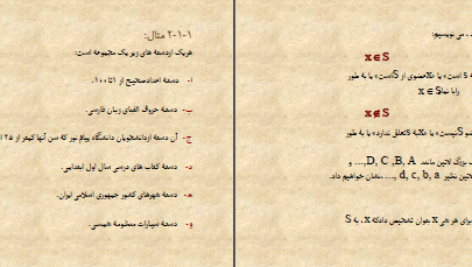 ۲-۱-۱ مثال:
هریک ازدسته های زیر یک مجموعه است:
ا- دسته اعدادصحیح از ۱تا۱۰۰.
ب- دسته حروف الفبای زبان فارسی.
ج- آن دسته ازدانشجویان دانشگاه پیام نور که سن آنها کمتر از ۲۵
د- دسته کتاب های درسی سال اول ابتدایی.
ه- دسته شهرهای کشور جمهوری اسلامی ایران.
و- دسته سیارات منظومه شمسی.
می نویسیم:
x∈S
است» یا «xعضوی از S است» یا به طور
x ∈ S
x∉S
S نیست» یا «x به S تعلق ندارد» یا به طور
بزرگ لاتین مانند D, C ,B, A,… و
لاتین نظیر d, c, b, a ,…نشان خواهیم داد.
برای هر شی x بتوان تشخیص دادکه x ، به S